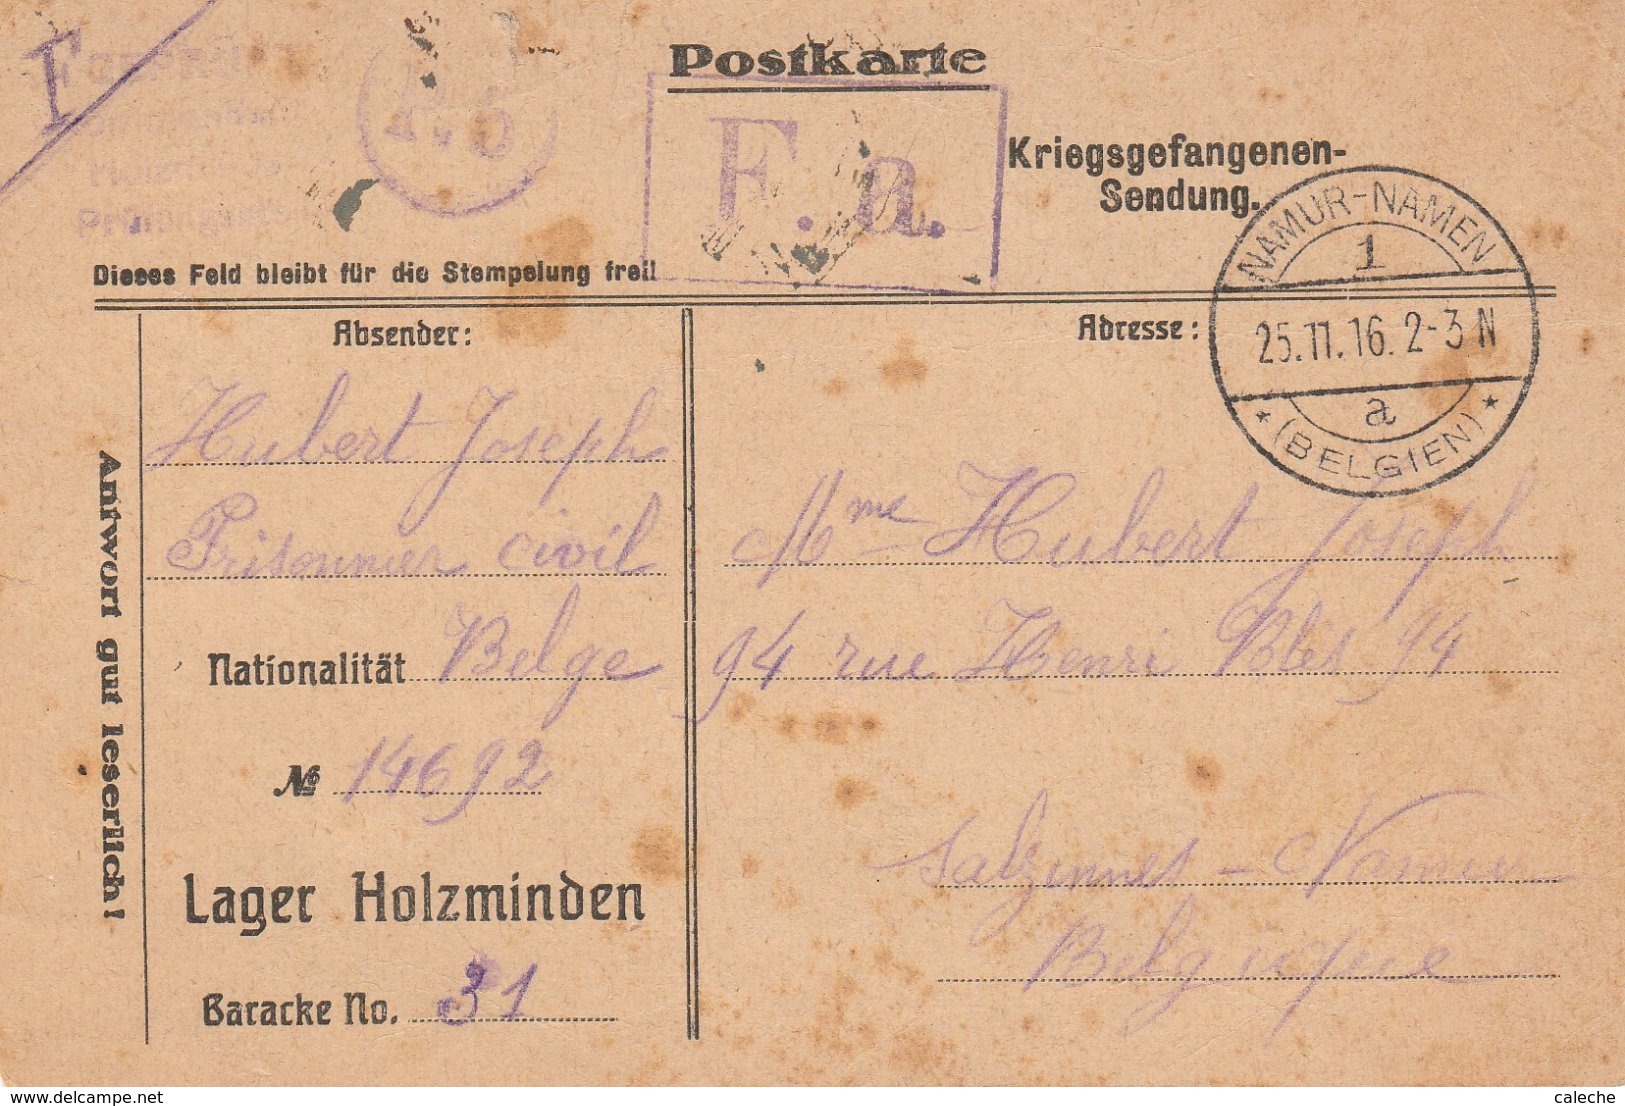 Postkarte
F
F. b
F. a.
Kriegsgefangenen-
Sendung.
NAMUR-NAMEN
1
25.11.16. 2-3 N
a
* (BELGIEN) *
Dieses Feld bleibt für die Stempelung frei!
Antwort gut leserlich!
Absender:
Hubert Joseph
Prisonnier civil
Nationalität Belge
№ 14692
Lager Holzminden
Baracke No. 31
Adresse:
Mme Hubert Joseph
94 rue Henri Blès 94
Salzinnes - Namur
Belgique
delcampe.net
caleche